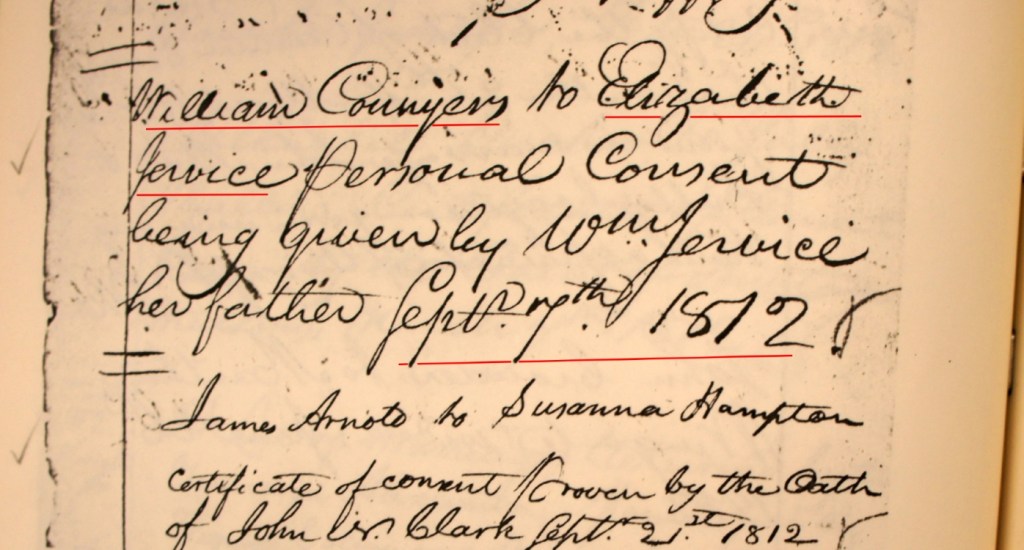 William Counyers to Elizabeth
Jervice personal Consent
being given by Wm Jervice
her father Septr. 7th. 1812
James Arnold to Susanna Hampton
Certificate of consent Proven by the Oath
of John W. Clark Septr. 21st 1812